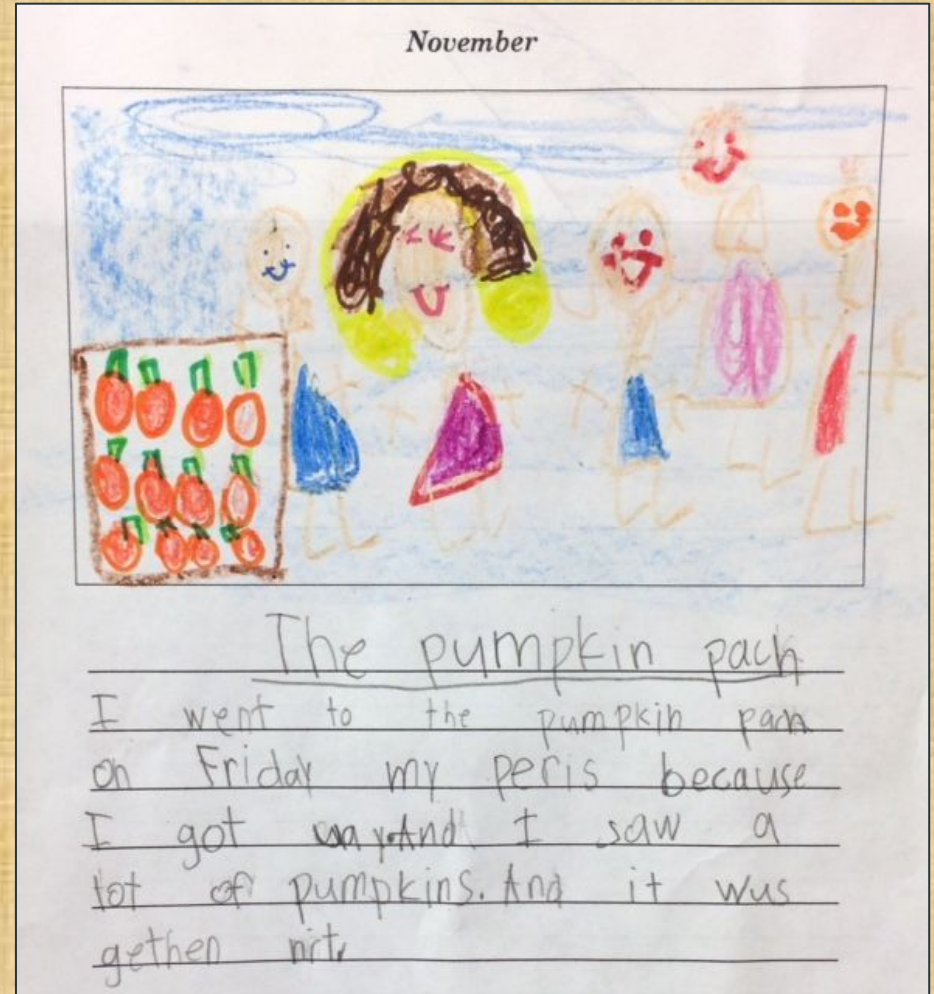 November
The pumpkin pach
I went to the pumpkin pach
on Friday my peris because
I got And I saw a
lot of pumpkins. And it wus
gethen